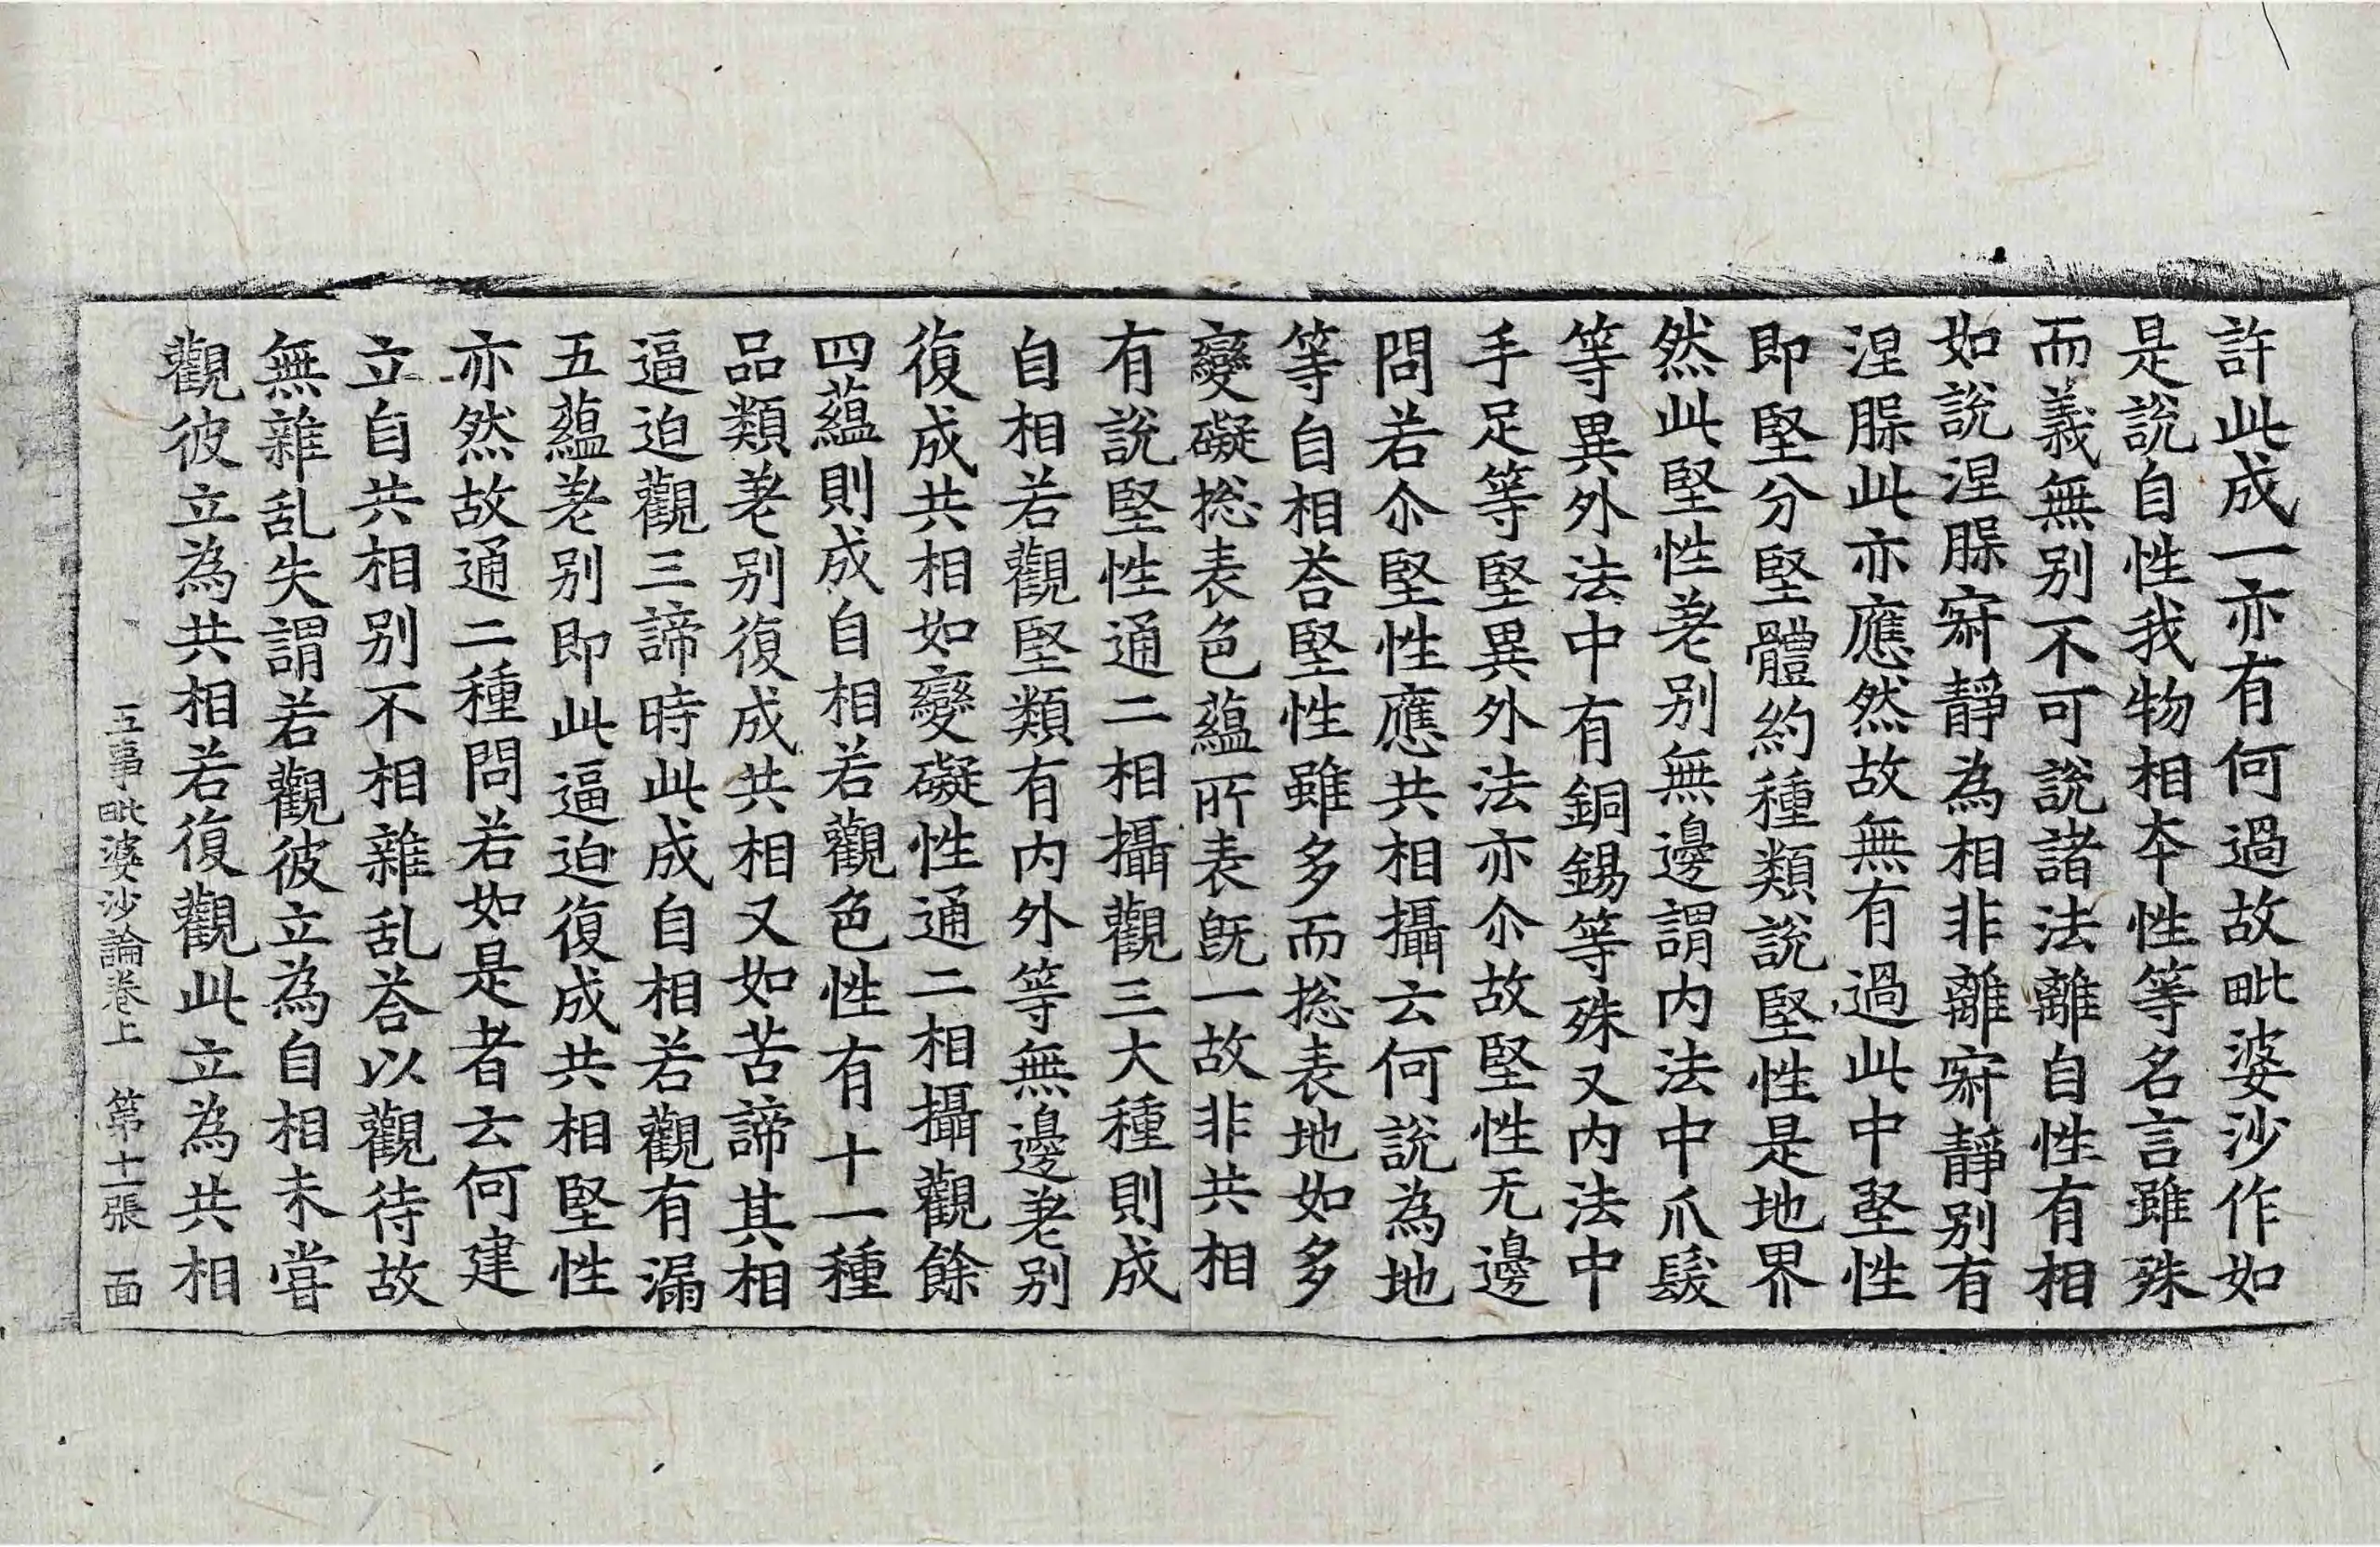 許此成一亦有何過故毗婆沙作如
是說自性我物相夲性等名言雖殊
而義無別不可說諸法離自性有相
如說涅脲寂靜為相非離寂靜別有
涅脲此亦應然故無有過此中堅性
即堅分堅體約種類說堅性是地界
然此堅性差別無邊謂内法中爪髮
等異外法中有銅錫等殊又内法中
手足等堅異外法亦尒故堅性无邊
問若尒堅性應共相攝云何說為地
等自相荅堅性雖多而揔表地如多
變礙揔表色蘊所表旣一故非共相
有說堅性通二相攝觀三大種則成
自相若觀堅類有内外等無邊差別
復成共相如變礙性通二相攝觀餘
四蘊則成自相若觀色性有十一種
品類差別復成共相又如苦諦其相
逼迫觀三諦時此成自相若觀有漏
五蘊差別即此逼迫復成共相堅性
亦然故通二種問若如是者云何建
立自共相別不相雜乱荅以觀待故
無雜乱失謂若觀彼立為自相未甞
觀彼立為共相若復觀此立為共相
五事毗婆沙論卷上　第十一張　面